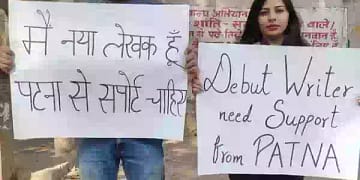 मै नया लेखक हूँ
पटना से सपोर्ट चाहिए
Debut Writer
need Support
from PATNA